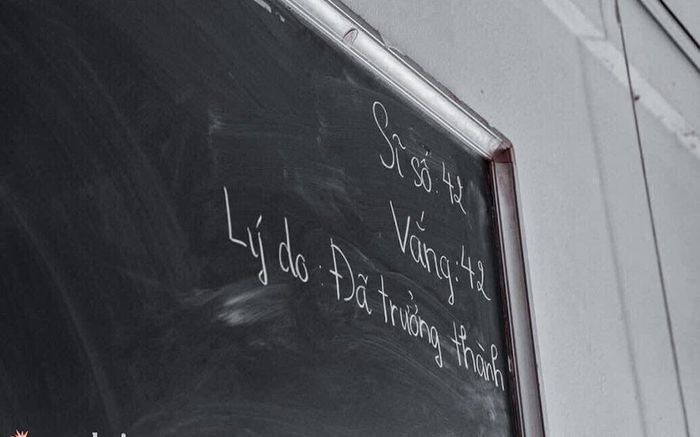 Sĩ số: 42
Vắng: 42
Lý do: Đã trưởng thành